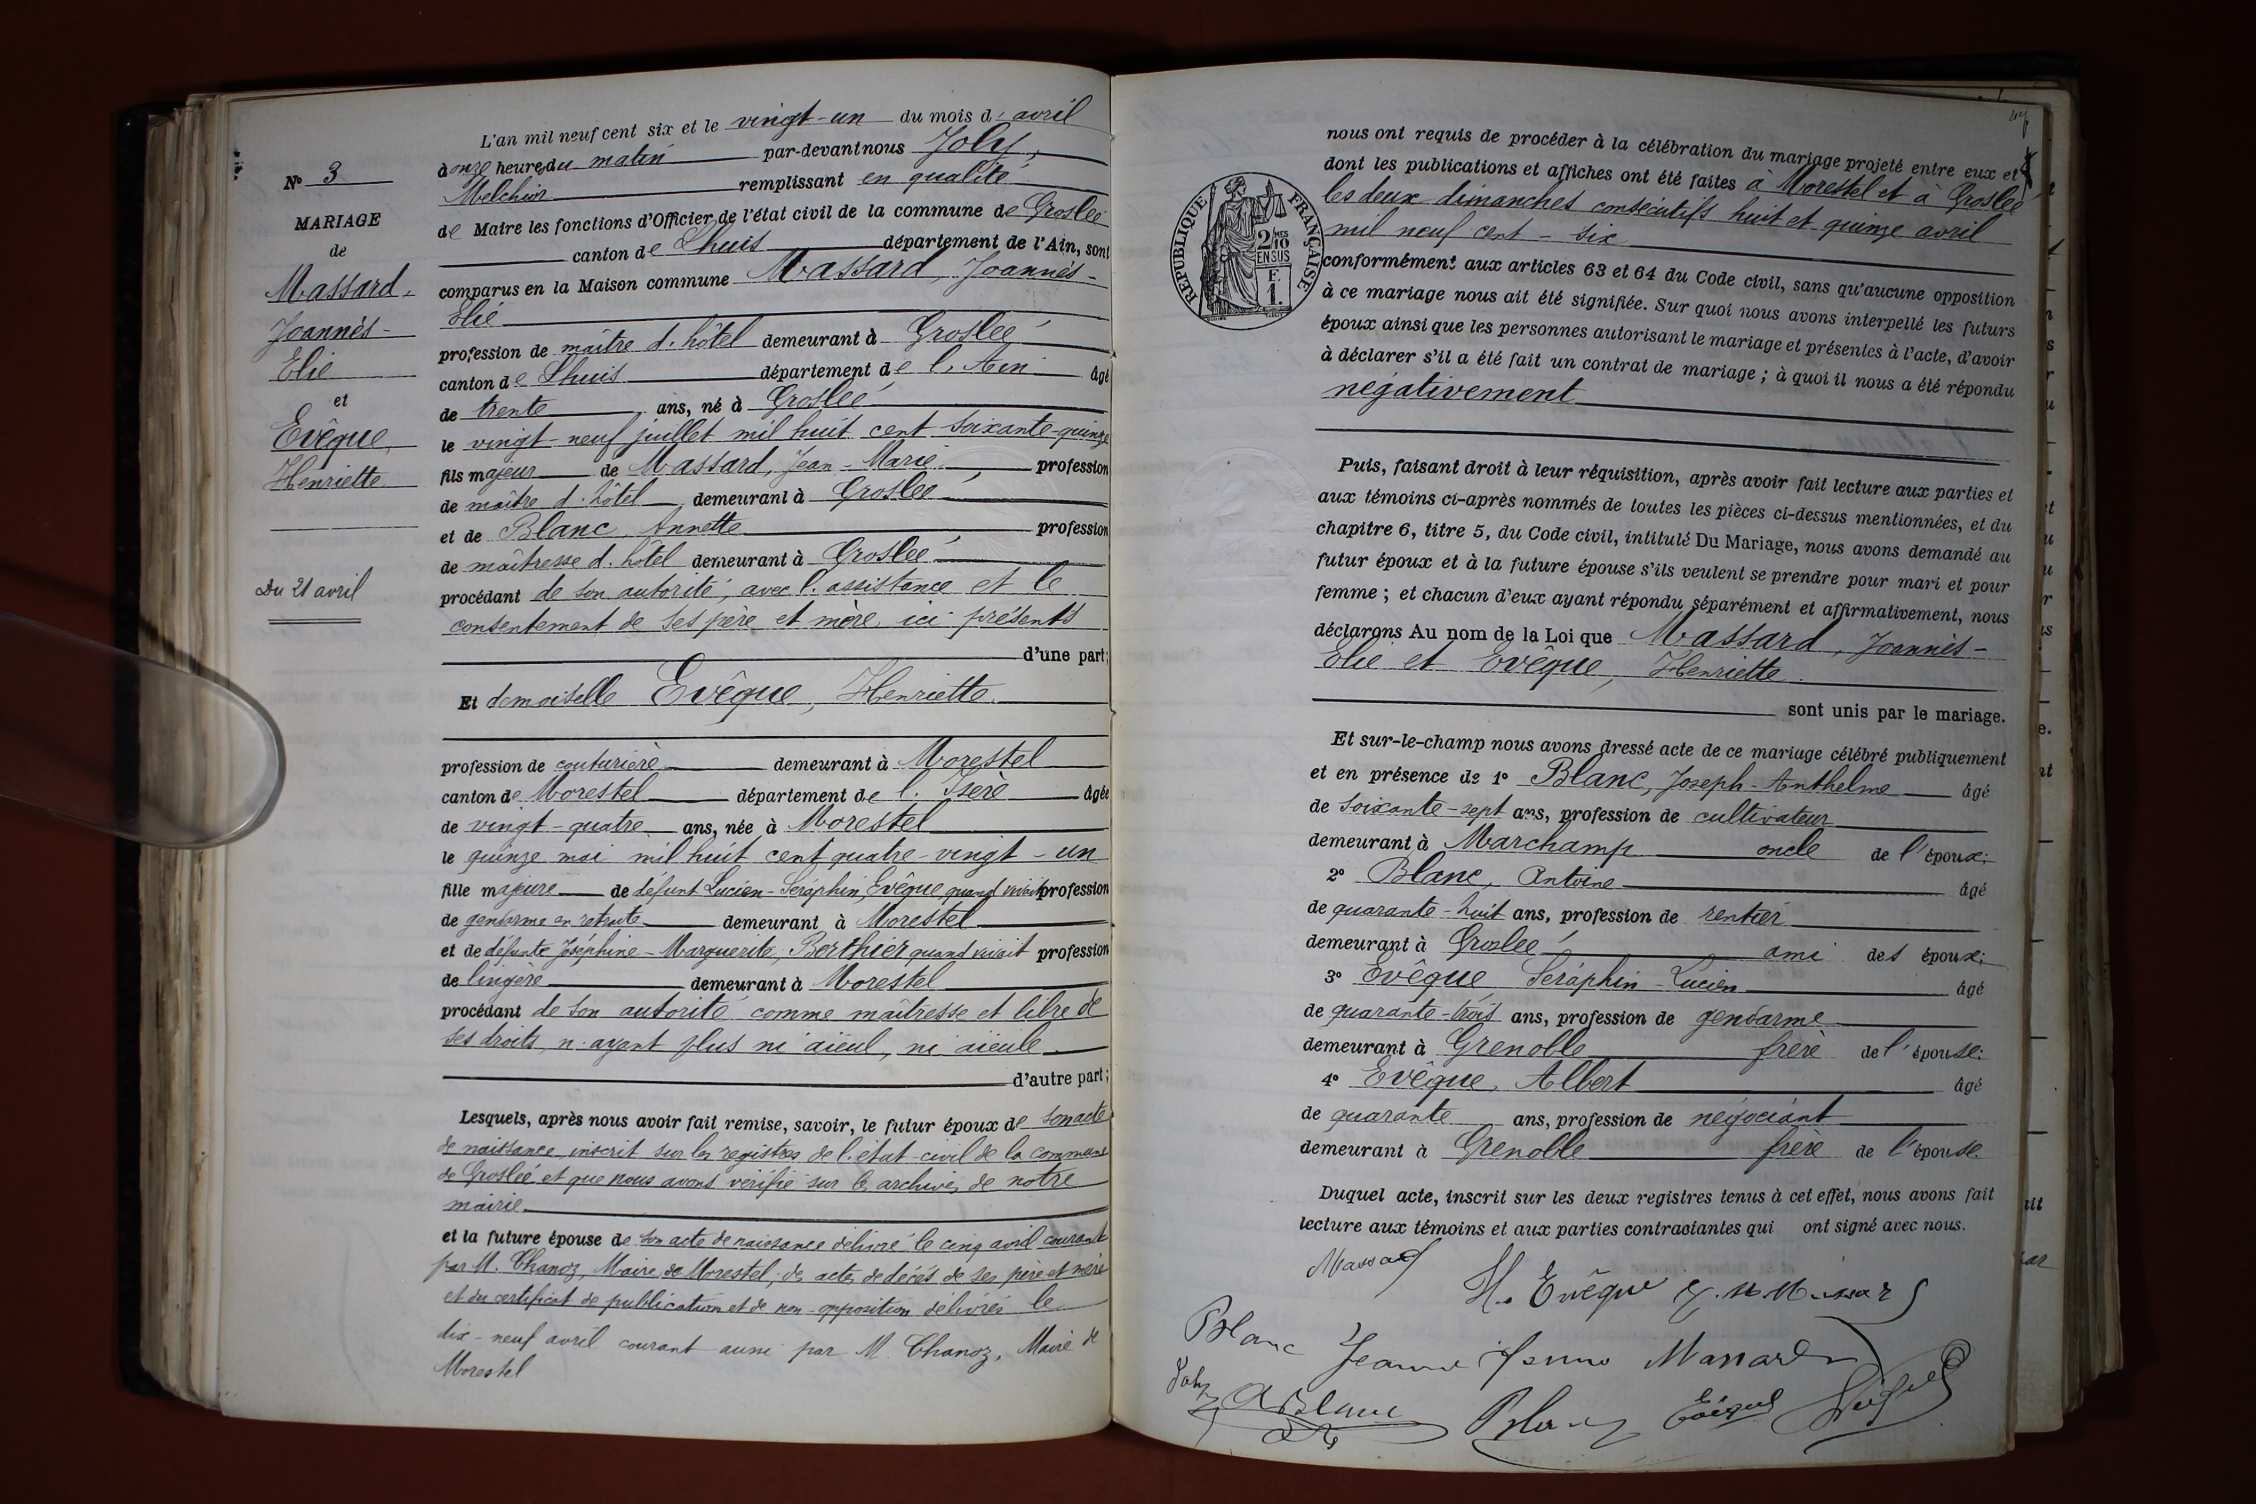 N° 3
MARIAGE
de
Massard,
Joannès-
Elie
et
Evêque,
Henriette
Du 21 avril
L'an mil neuf cent six et le vingt-un du mois d'avril
à onze heures du matin par-devant nous Joly,
Melchior remplissant en qualité
de Maire les fonctions d'Officier de l'état civil de la commune de Groslée
canton de Lhuis département de l'Ain, sont
comparus en la Maison commune Massard, Joannès-
Elie
profession de maître d'hôtel demeurant à Groslée
canton de Lhuis département de l'Ain âgé
de trente ans, né à Groslée
le vingt-neuf juillet mil huit cent soixante-quinze
fils majeur de Massard, Jean-Marie profession
de maître d'hôtel demeurant à Groslée
et de Blanc, Annette profession
de maîtresse d'hôtel demeurant à Groslée
procédant de son autorité, avec l'assistance et le
consentement de ses père et mère ici présents
d'une part;
Et demoiselle Evêque, Henriette
profession de couturière demeurant à Morestel
canton de Morestel département de l'Isère âgée
de vingt-quatre ans, née à Morestel
le quinze mai mil huit cent quatre-vingt-un
fille majeure de défunt Lucien-Séraphin Evêque quand vivait profession
de gendarme en retraite demeurant à Morestel
et de défunte Joséphine-Marguerite, Berthier quand vivait profession
de lingère demeurant à Morestel
procédant de son autorité comme maîtresse et libre de
ses droits, n'ayant plus ni aïeul, ni aïeule
d'autre part;
Lesquels, après nous avoir fait remise, savoir, le futur époux de son acte
de naissance inscrit sur les registres de l'état-civil de la commune
de Groslée et que nous avons vérifié sur les archives de notre
mairie
et la future épouse de son acte de naissance délivré le cinq avril courant
par M. Chanoz, Maire de Morestel, des actes de décès de ses père et mère
et du certificat de publication et de non-opposition délivrés le
dix-neuf avril courant aussi par M. Chanoz, Maire de
Morestel
RÉPUBLIQUE FRANÇAISE
2/10 MES
EN SUS
F.
1.
nous ont requis de procéder à la célébration du mariage projeté entre eux et
dont les publications et affiches ont été faites à Morestel et à Groslée
les deux dimanches consécutifs huit et quinze avril
mil neuf cent-six
conformément aux articles 63 et 64 du Code civil, sans qu'aucune opposition
à ce mariage nous ait été signifiée. Sur quoi nous avons interpellé les futurs
époux ainsi que les personnes autorisant le mariage et présentes à l'acte, d'avoir
à déclarer s'il a été fait un contrat de mariage; à quoi il nous a été répondu
négativement
Puis, faisant droit à leur réquisition, après avoir fait lecture aux parties et
aux témoins ci-après nommés de toutes les pièces ci-dessus mentionnées, et du
chapitre 6, titre 5, du Code civil, intitulé Du Mariage, nous avons demandé au
futur époux et à la future épouse s'ils veulent se prendre pour mari et pour
femme; et chacun d'eux ayant répondu séparément et affirmativement, nous
déclarons Au nom de la Loi que Massard, Joannès-
Elie et Evêque, Henriette
sont unis par le mariage.
Et sur-le-champ nous avons dressé acte de ce mariage célébré publiquement
et en présence de 1° Blanc, Joseph-Anthelme âgé
de soixante-sept ans, profession de cultivateur
demeurant à Marchamp oncle de l'époux;
2° Blanc, Antoine âgé
de quarante-huit ans, profession de rentier
demeurant à Groslée ami des époux;
3° Evêque Séraphin-Lucien âgé
de quarante-trois ans, profession de gendarme
demeurant à Grenoble frère de l'épouse;
4° Evêque, Albert âgé
de quarante ans, profession de négociant
demeurant à Grenoble frère de l'épouse.
Duquel acte, inscrit sur les deux registres tenus à cet effet, nous avons fait
lecture aux témoins et aux parties contractantes qui ont signé avec nous.
Massard
H. Evêque
Blanc Jeanne Massard
Joly A Blanc Blanc Evêque